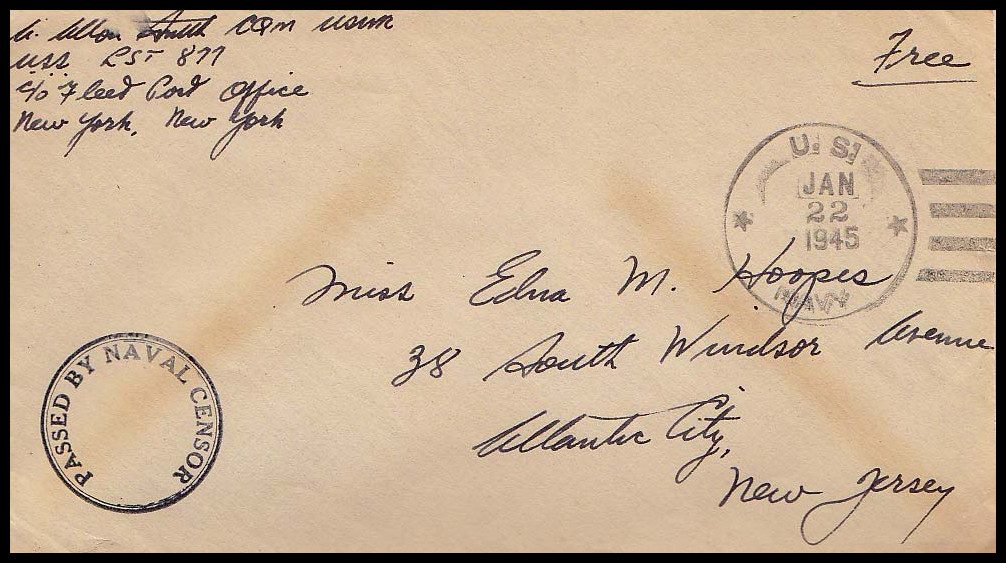 Allan South CQM USNR
USS LST 877
c/o Fleet Post Office
New York, New York
Free
U. S.
JAN
22
1945
NAVY
Miss Edna M. Hoopes
38 South Windsor Avenue
Atlantic City,
New Jersey
PASSED BY NAVAL CENSOR